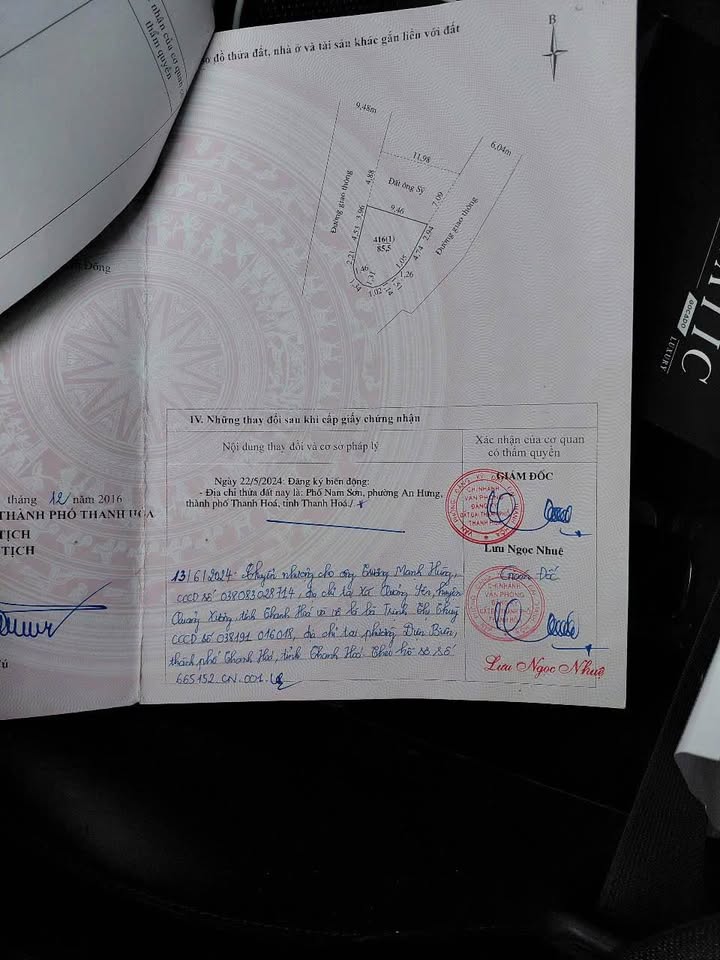 nhận của cơ quan
thẩm quyền
đồ thửa đất, nhà ở và tài sản khác gắn liền với đất
B
9,48m
6,04m
11,98
Đất ông Sỹ
4,88
7,09
Đường giao thông
Đường giao thông
9,46
3,96
2,94
416(1)
85,5
4,53
4,74
2,21
1,05
1,26
1,31
1,02
Đông
IV. Những thay đổi sau khi cấp giấy chứng nhận
Nội dung thay đổi và cơ sở pháp lý
Xác nhận của cơ quan
có thẩm quyền
Ngày 22/5/2024: Đăng ký biến động:
- Địa chỉ thửa đất nay là: Phố Nam Sơn, phường An Hưng,
thành phố Thanh Hoá, tỉnh Thanh Hoá./.
GIÁM ĐỐC
CHI NHÁNH
VĂN PHÒNG
Lưu Ngọc Nhuệ
13/6/2024 Chuyển nhượng cho ông Trương Mạnh Hùng,
CCCD số 038083028714, địa chỉ tại xã Quảng Yên, huyện
Quảng Xương, tỉnh Thanh Hoá và vợ là bà Trịnh Thị Thuỷ
CCCD số 038191 016018, địa chỉ tại phường Điện Biên,
thành phố Thanh Hoá, tỉnh Thanh Hoá. Theo hồ sơ số
665152.CN.001.
Giám Đốc
CHI NHÁNH
VĂN PHÒNG
Lưu Ngọc Nhuệ
tháng 12 năm 2016
THÀNH PHỐ THANH HÓA
TỊCH
TỊCH
GOCADO
LUXURY